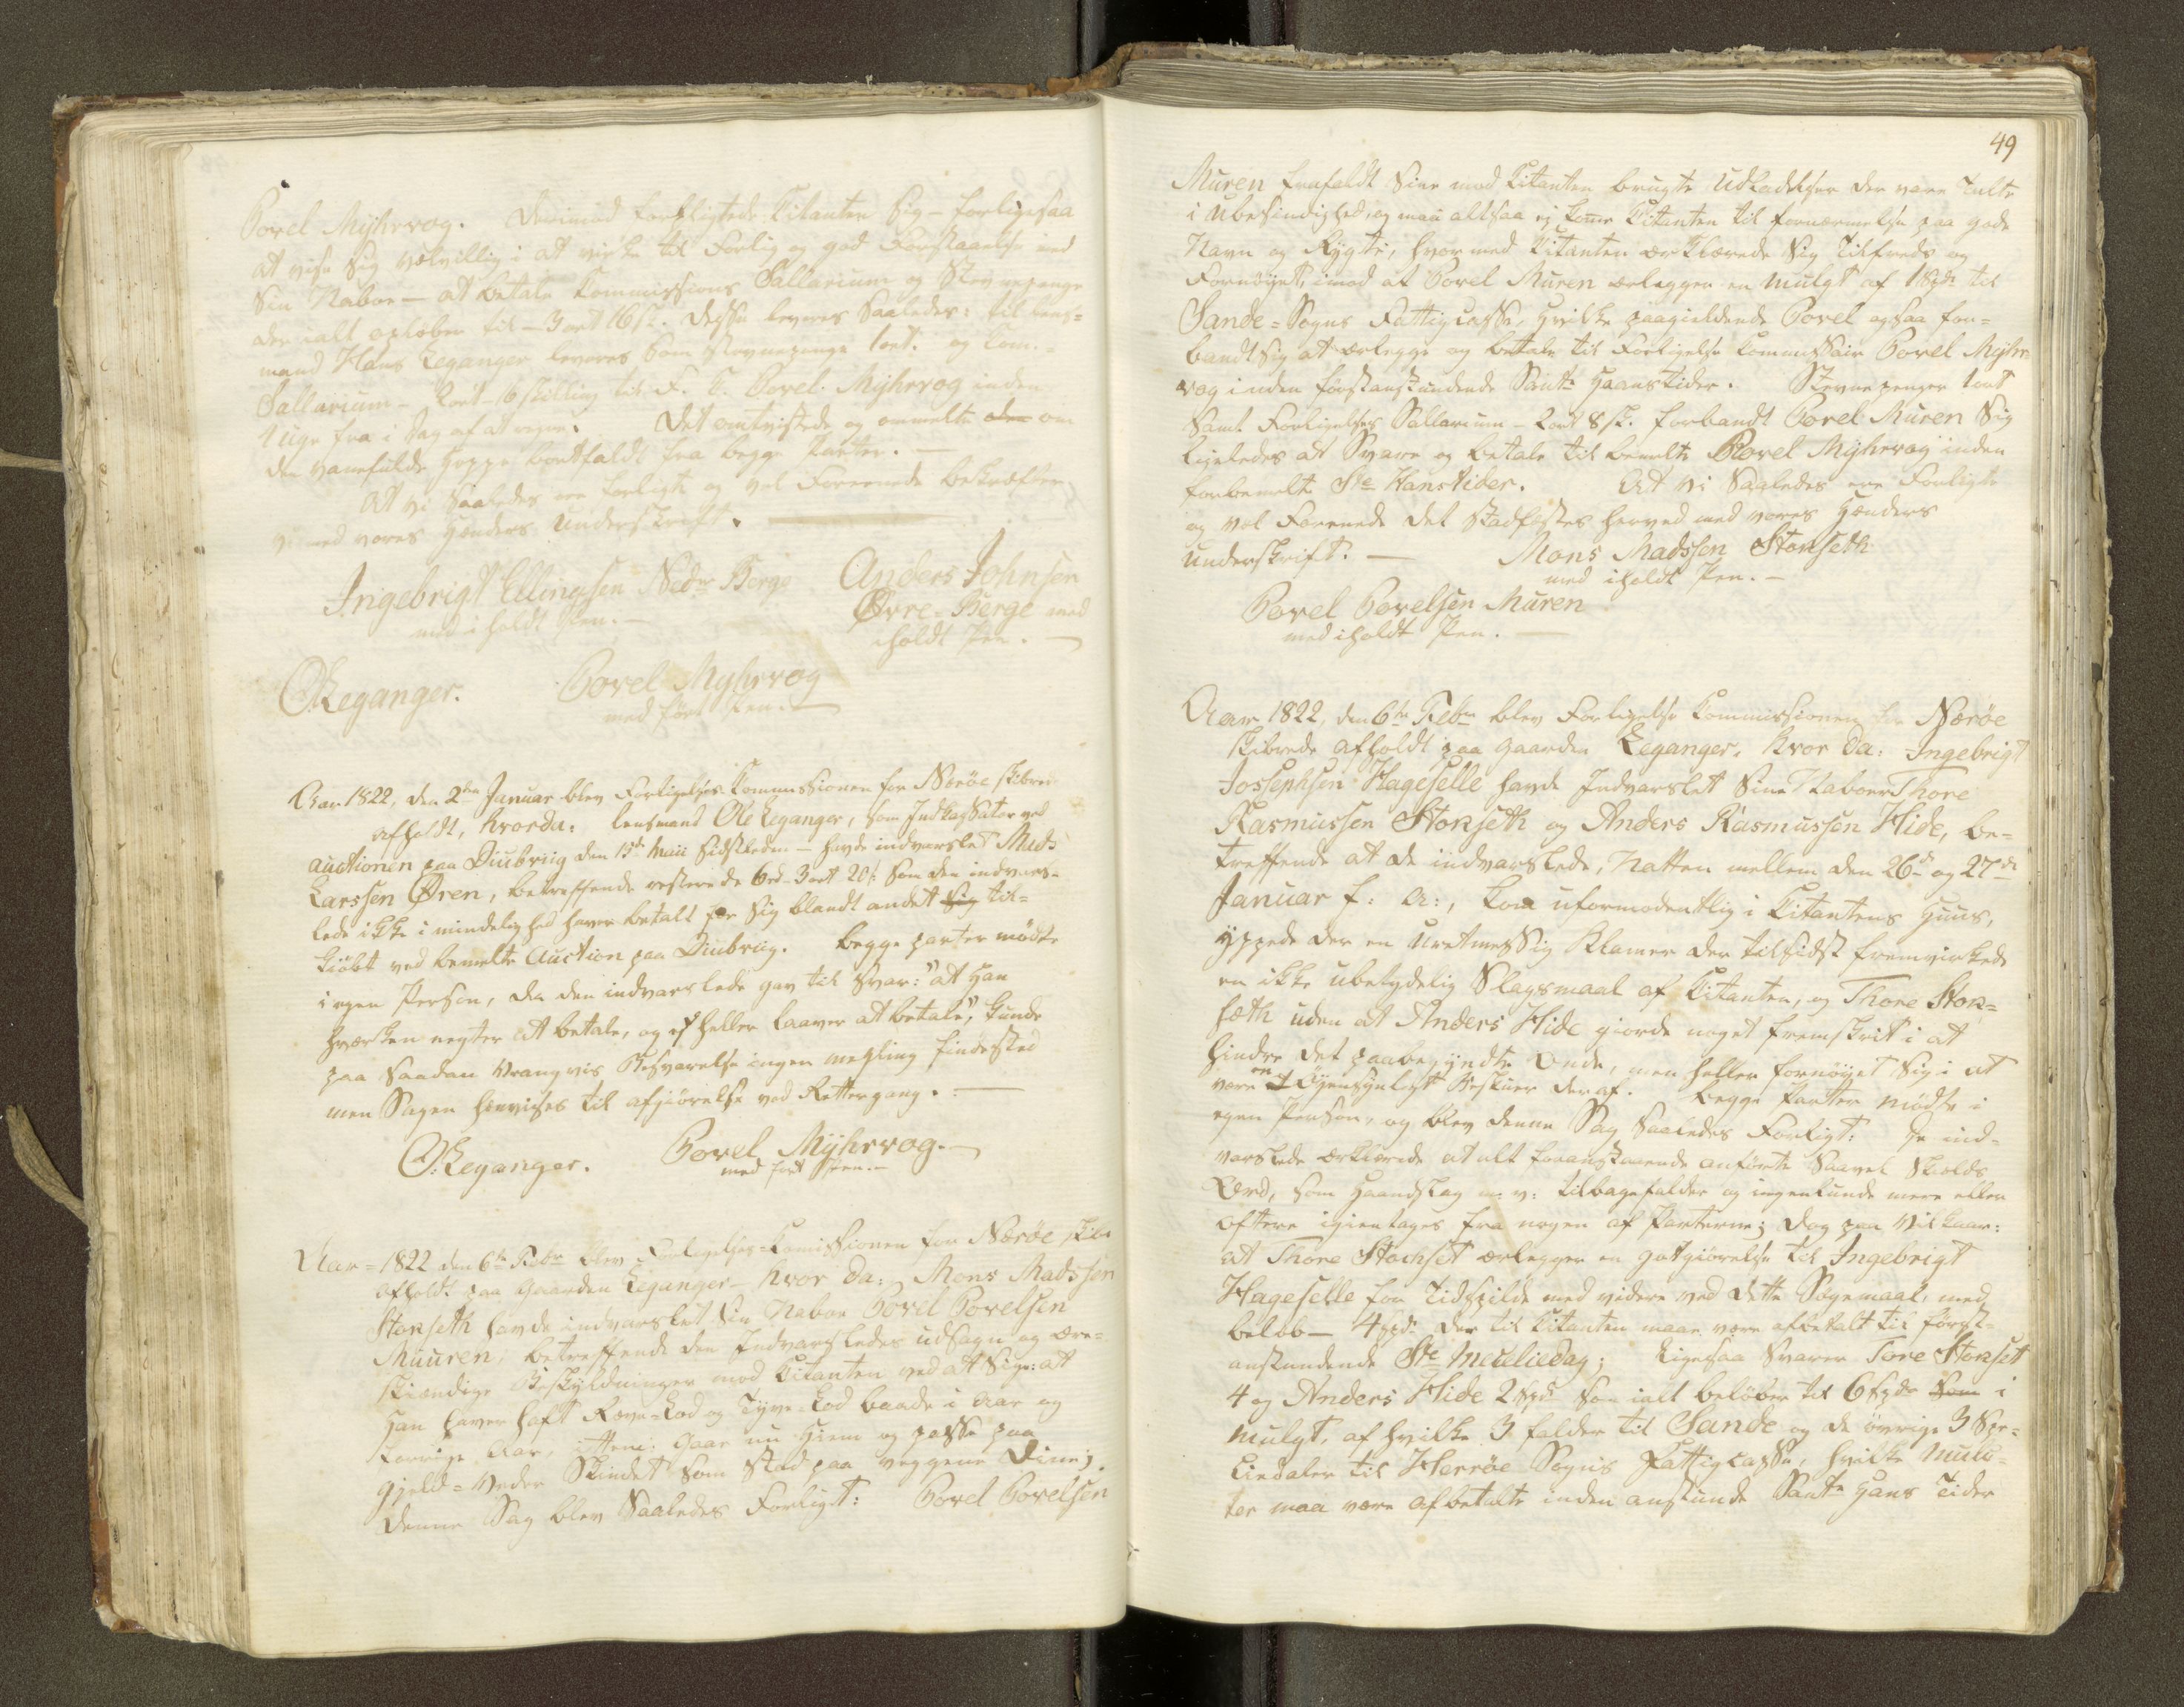 Povel Myhrvog. Derimod forpligtede Citanten sig – forligesaa
at vise sig velvillig i at virke til Forlig og god Forstaaelse med
sin Naboe – at betale Commissions Sallarium og Stevnepenge
der ialt opløber til – 3 ort 16 s. Disse leveres saaledes: til lens=
mand Hans Leganger leveres som stevnepenge 1 ort. og Com.=
Sallarium – 2 ort – 16 skilling til F. C. Povel Myhrvog inden
4 uger fra i Dag af at regne. Det omtvistede og ommelte om
den vanefulde Hoppe bortfaldt fra begge Parter. –
At vi saaledes ere forligte og vel Foreenede bekræfter
vi med vores Hænders Underskrift. –
Ingebrigt Ellingsen Nedre Berge
med i holdt Pen. –
Anders Johnsen
Øvre-Berge med
iholdt Pen. –
O. Leganger.
Povel Myhrvog
med ført Pen. –
Aar 1822, den 2den Januar blev Forligelses Commissionen for Nærøe skibrede
afholdt, hvorda: lensmand Ole Leganger, som Indkassator ved
auctionen paa Diubviig den 15de Maii sidstleden – havde indvarslet Mads
Larssen Øren, betreffende resterende 6 rd. 3 ort 20 s. som den indvars=
lede ikke i mindelighed haver betalt for sig blandt andet sig til=
kiøbt ved bemelte Auction paa Diubviig. begge parter mødte
i egen Person, da den indvarslede gav til svar: "at han
hværken negter at betale, og ej heller laaver at betale", kunde
paa saadan Vrangvis Besvarelse ingen megling finde sted
men Sagen henvises til afgiørelse ved Rettergang. –
O. Leganger.
Povel Myhrvog. –
med ført Pen. –
Aar = 1822 den 6te Febr blev Forligelses-Comissionen for Nærøe skibr
afholdt paa Gaarden Leganger – hvor da: Mons Madssen
Storseth havde indvarslet sin Naboe Povel Povelsen
Muuren, betreffende den Indvarsledes udsagn og ære=
skiændige Beskyldninger mod Citanten ved at sige: at
han haver haft Ræve-Lod og Tyve-Lod baade i Aar og
Forrige Aar, ittem: Gaar nu hiem og passe paa
gjeld = Veder Skindet som stod paa veggene Dine;
denne Sag blev saaledes Forligt: Povel Povelsen
49
Muren frafaldt sine mod Citanten brugte Udladelser der vare talte
i Ubesindighed, og maa altsaa ej kome Citanten til fornærmelse paa gode
Navn og Rygte, hvormed Citanten erklærede sig tilfreds og
Fornøyet, imod at Povel Muren erlegger en Mulgt af 1 Spd. til
Sande = Sogns Fattigcasse, hvilke paagieldende Povel ogsaa for=
bandt sig at erlegge og betale til Forligelse Commissair Povel Myhr
vog inden førstanstundende Sante Haanstider. Stevnepenger 1 ort
samt Forligelses Sallarium – 2 ort 8 s. forbandt Povel Muren sig
ligeledes at svare og betale til bemelte Povel Myhrvog inden
forbemelte Ste Hanstider. At vi saaledes ere Forligte
og vel Forenede det stadfæstes herved med vores Hænders
underskrift. –
Mons Madssen Storseth
med iholdt Pen. –
Povel Povelsen Muren
med iholdt Pen. –
Aar 1822, den 6te Febr blev Forligelse Commissionen for Nærøe
skibrede afholdt paa Gaarden Leganger, hvor da: Ingebrigt
Jossephsen Hageselle havde Indvarslet sine Naboer Thore
Rasmussen Storseth og Anders Rasmussen Hide, be=
treffende at de indvarslede, Natten mellem den 26de og 27de
Januar h: a:, kom uformodentlig i Citantens Huus,
yppede der en uretmessig Klamer der tilsidst fremvirkede
en ikke ubetydelig Slagsmaal af Citanten, og Thore Stor=
seth uden at Anders Hide giorde noget fremskrit i at
hindre det paabegyndte Onde, men heller fornøyet sig i at
være en Øyensynligt Beskuer deraf. begge Parter mødte i
egen Person, og blev denne Sag saaledes Forligt: de ind=
varslede erklærede at alt foranstaaende anførte saavel skields
Ord, som Haandslag m: v: tilbagefalder og ingenlunde mere eller
oftere igientages fra nogen af Parterne; dog paa vilkaar:
at Thore Storset erlegger en godtgiørelse til Ingebrigt
Hageselle for Tidspilde med videre ved dette Sagemaal, med
beløb – 4 spd. der til Citanten maae være afbetalt til først=
anstundende Ste Mcūlieday; ligesaa svarer Tore Storset
4 og Anders Hide 2 spd som ialt beløber til 6 spdr som i
Mulgt, af hvilke 3 falder til Sande og de øvrige 3 Spe=
ciedaler til Herrøe Sogns Fattigcasse, hvilke Mulg=
ter maa være afbetalte inden anstunde Sante Hans Tider